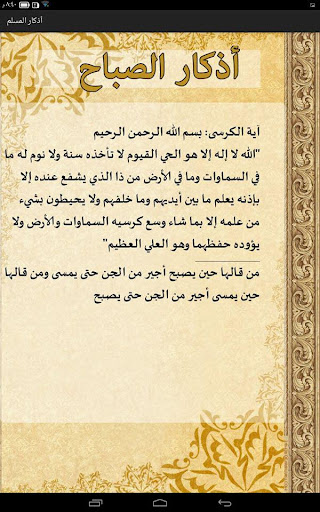 م ٨:٤٠
أذكار المسلم
أذكار الصباح
آية الكرسى: بسم الله الرحمن الرحيم
"الله لا إله إلا هو الحي القيوم لا تأخذه سنة ولا نوم له ما
في السماوات وما في الأرض من ذا الذي يشفع عنده إلا
بإذنه يعلم ما بين أيديهم وما خلفهم ولا يحيطون بشيء
من علمه إلا بما شاء وسع كرسيه السماوات والأرض ولا
يؤوده حفظهما وهو العلي العظيم"
من قالها حين يصبح أجير من الجن حتى يمسى ومن قالها
حين يمسى أجير من الجن حتى يصبح